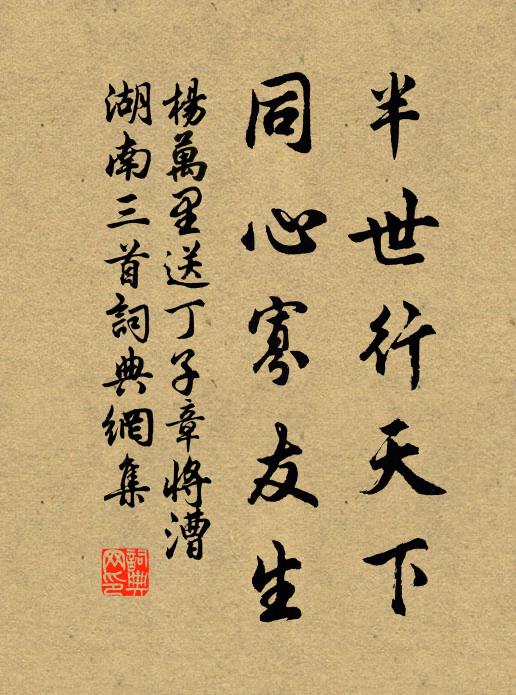 半世行天下
同心寡友生
楊萬里送丁子章將漕
湖南三首詞典網集
詞典網印